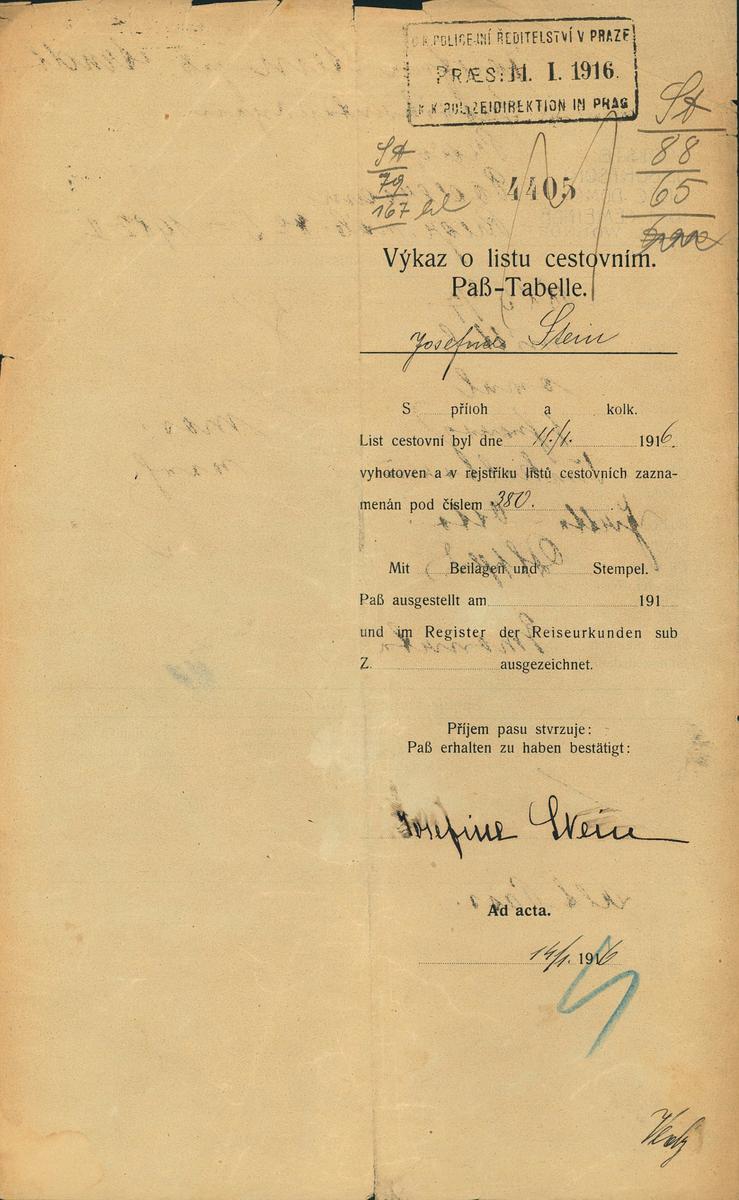 K.K. POLICEJNÍ ŘEDITELSTVÍ V PRAZE
PRÆS: 11. I. 1916.
K.K POLIZEIDIREKTION IN PRAG
St
88
65
St
79
167
4405
Výkaz o listu cestovním.
Paß-Tabelle.
Josefine Stein
S příloh a kolk.
List cestovní byl dne 11./1. 1916.
vyhotoven a v rejstříku listů cestovních zazna-
menán pod číslem 380.
Mit Beilagen und Stempel.
Paß ausgestellt am 191
und im Register der Reiseurkunden sub
Z. ausgezeichnet.
Příjem pasu stvrzuje:
Paß erhalten zu haben bestätigt:
Josefine Stein
Ad acta.
14/1. 1916